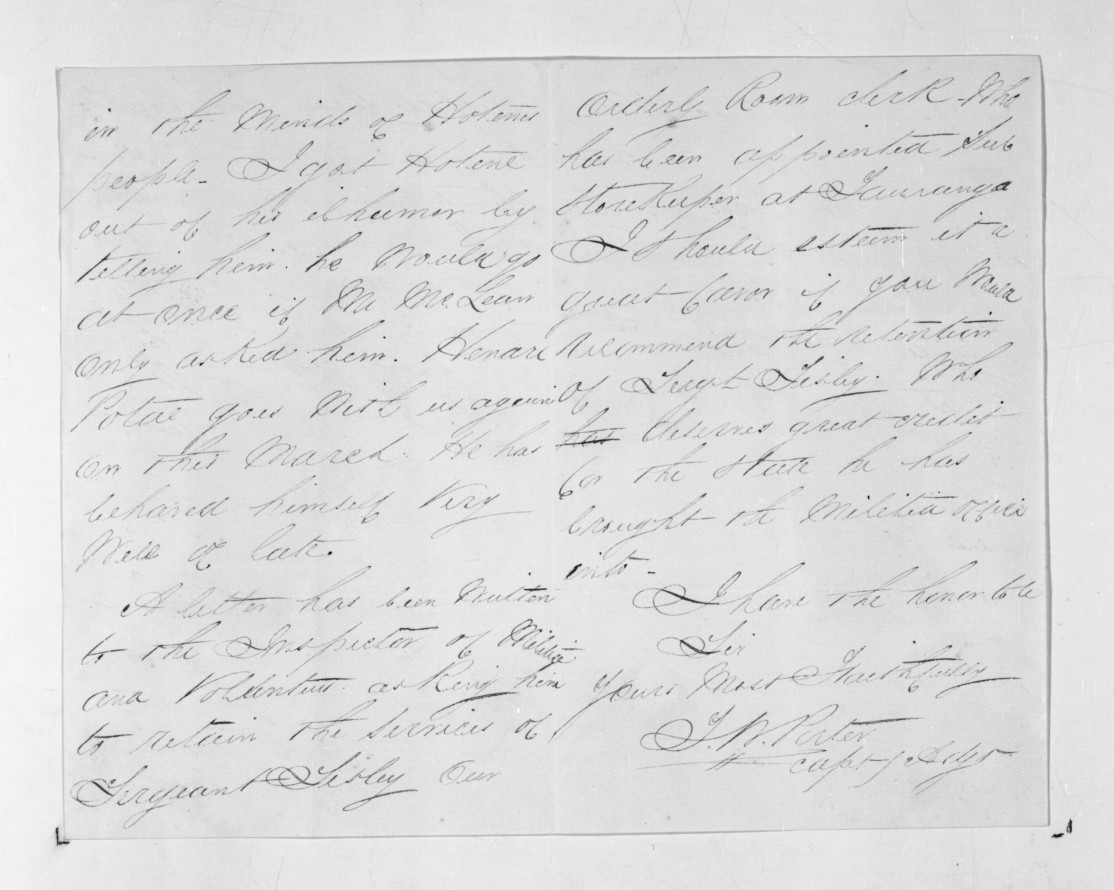 in the Minds of Hotenes
people. I got Hotene
out of his ilhumor by
telling him. he would go
at once if Mr McLean
only asked him. Henare
Potae goes with us again
on this March. He has
behaved himself very
well of late.
A letter has been written
to the Inspector of Militia
and Volunteers. asking him
to retain the services of
Sergeant Sisley Our
Orderly Room clerk. Who
has been appointed Sub
Storekeeper at Tauranga
I should esteem it a
great favor if you would
recommend the retention
of Sergt Sisley. Who
has deserves great credit
for the state he has
brought the Militia office
into -
I have the honor to be
Sir
Yours Most Faithfully
T. W. Porter
Capt & Adgt